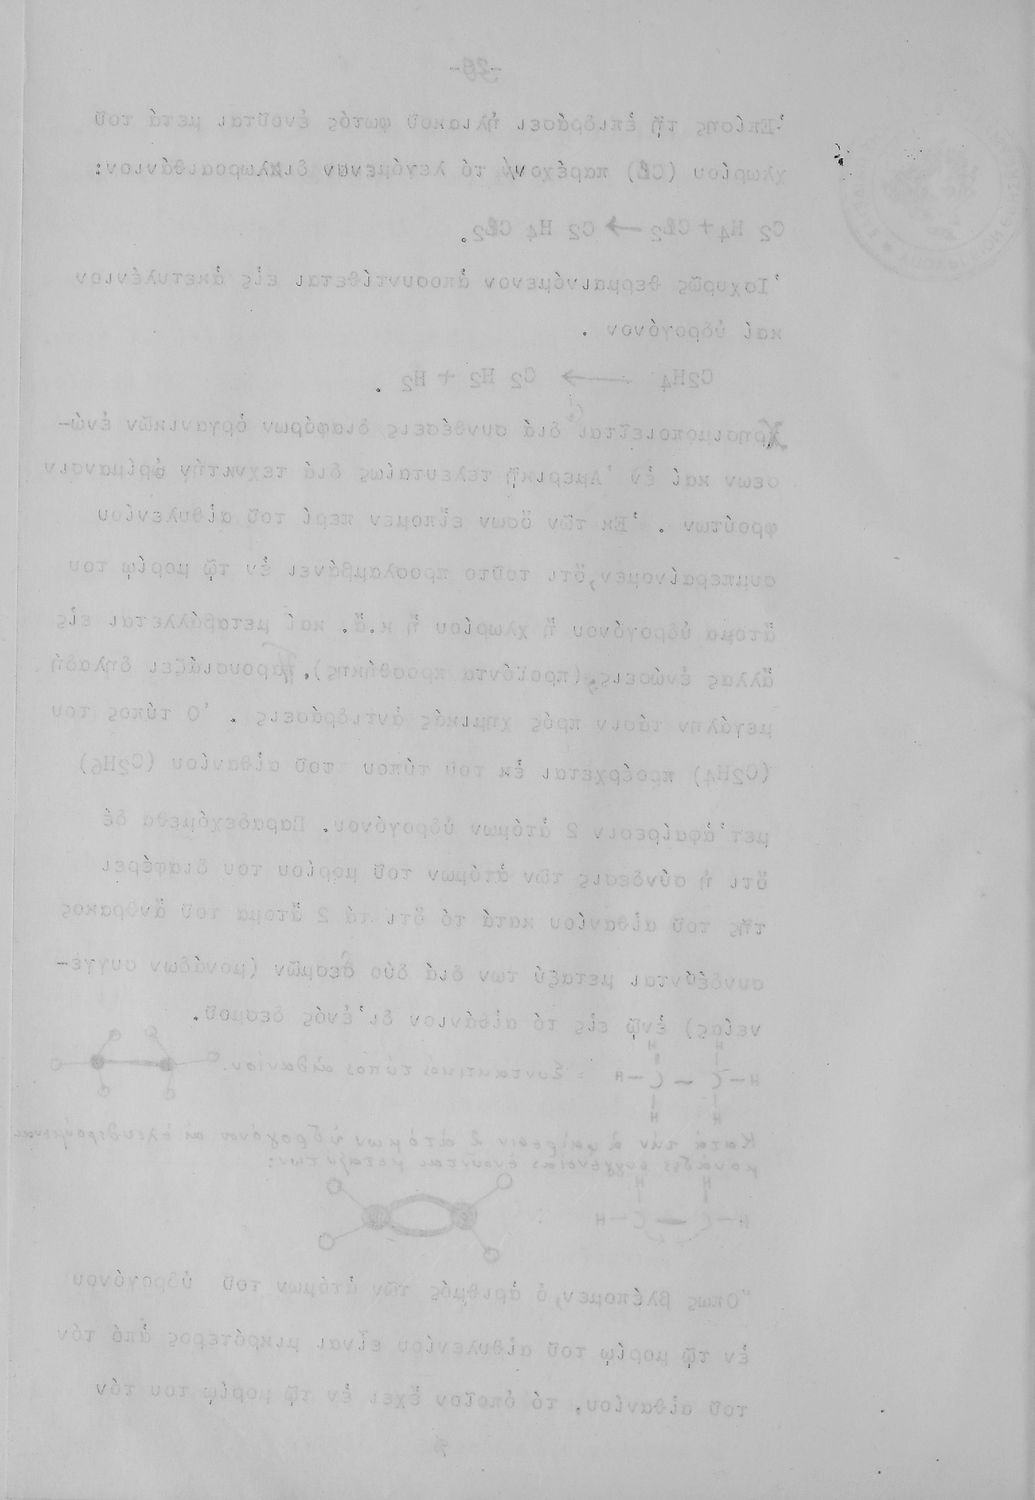 -39-
Ἐπίσης τῇ ἐπιδράσει ἡλιακοῦ φωτός ἑνοῦται μετά τοῦ
χλωρίου (Cl) παρέχον τό λεγόμενον διχλωροαιθάνιον:
C2 H4 + Cl2 → C2 H4 Cl2.
Ἰσχυρῶς θερμαινόμενον ἀποσυντίθεται εἰς ἀκετυλένιον
καί ὑδρογόνον .
C2H4 → C2 H2 + H2 .
Χρησιμοποιεῖται διά συνθέσεις διαφόρων ὀργανικῶν ἑνώ-
σεων καί ἐν Ἀμερικῇ τελευταίως διά τεχνητήν ὡρίμανσιν
φρούτων . Ἐκ τῶν ὅσων εἴπομεν περί τοῦ αἰθυλενίου
συμπεραίνομεν, ὅτι τοῦτο προσλαμβάνει ἐν τῷ μορίῳ του
ἄτομα ὑδρογόνου ἤ χλωρίου ἤ κ.ἄ. καί μεταβάλλεται εἰς
ἄλλας ἑνώσεις, (προϊόντα προσθήκης). Παρουσιάζει δηλαδή
μεγάλην τάσιν πρός χημικάς ἀντιδράσεις . Ὁ τύπος του
(C2H4) προέρχεται ἐκ τοῦ τύπου τοῦ αἰθανίου (C2H6)
μετ' ἀφαίρεσιν 2 ἀτόμων ὑδρογόνου. Παραδεχόμεθα δέ
ὅτι ἡ σύνδεσις τῶν ἀτόμων τοῦ μορίου του διαφέρει
τῆς τοῦ αἰθανίου κατά τό ὅτι τά 2 ἄτομα τοῦ ἄνθρακος
συνδέονται μεταξύ των διά δύο δεσμῶν (μονάδων συγγε-
νείας) ἐνῷ εἰς τό αἰθάνιον δι' ἑνός δεσμοῦ.
H H
H – C – C – H = Συντακτικός τύπος αἰθανίου.
H H
Κατά τήν ἀφαίρεσιν 2 ἀτόμων ὑδρογόνου αἱ ἐλευθερούμεναι
μονάδες συγγενείας ἑνοῦνται μεταξύ των:
H H
H – C – C – H
Ὅπως βλέπομεν, ὁ ἀριθμός τῶν ἀτόμων τοῦ ὑδρογόνου
ἐν τῷ μορίῳ τοῦ αἰθυλενίου εἶναι μικρότερος ἀπό τόν
τοῦ αἰθανίου, τό ὁποῖον ἔχει ἐν τῷ μορίῳ του τόν